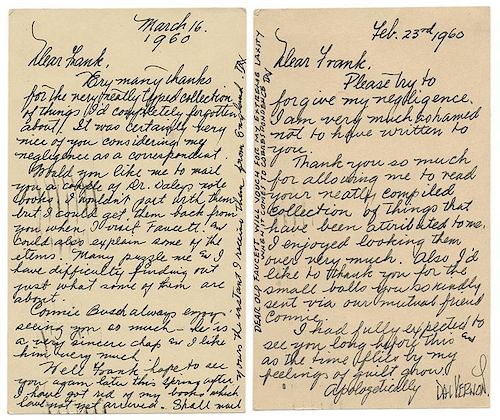 March 16.
1960
Dear Frank,
Very many thanks
for the very neatly typed collection
of things I'd completely forgotten
about. It was certainly very
nice of you considering my
negligence as a correspondent.
Would you like me to mail
you a couple of Dr. Daleys note
books. I wouldn't part with them
but I could get them back from
you when I visit Faucett. as
could also explain some of the
items. Many puzzle me as I
have difficulty finding out
just what some of them are
about.
Connie Bush always enjoy
seeing you so much - he is
a very sincere chap as I like
him very much.
Well Frank hope to see
you again later this spring after
I have got rid of my books which
have not yet arrived. Shall mail
yours the instant I receive them from England. DAI
Feb. 23rd, 1960
Dear Frank.
Please try to
forgive my negligence.
I am very much ashamed
not to have written to
you.
Thank you so much
for allowing me to read
your neatly compiled
collection of things that
have been attributed to me.
I enjoyed looking them
over very much. Also I'd
like to thank you for the
small balls you so kindly
sent via our mutual friend
Connie.
I had fully expected to
see you long before this as
as the time flies by my
feelings of guilt grow.
Apologetically
DAI VERNON
DEAR OLD FAUCETT WILL VOUCH FOR MY EXTREME LAXITY
WHEN IT COMES TO CORRESPONDENCE DV